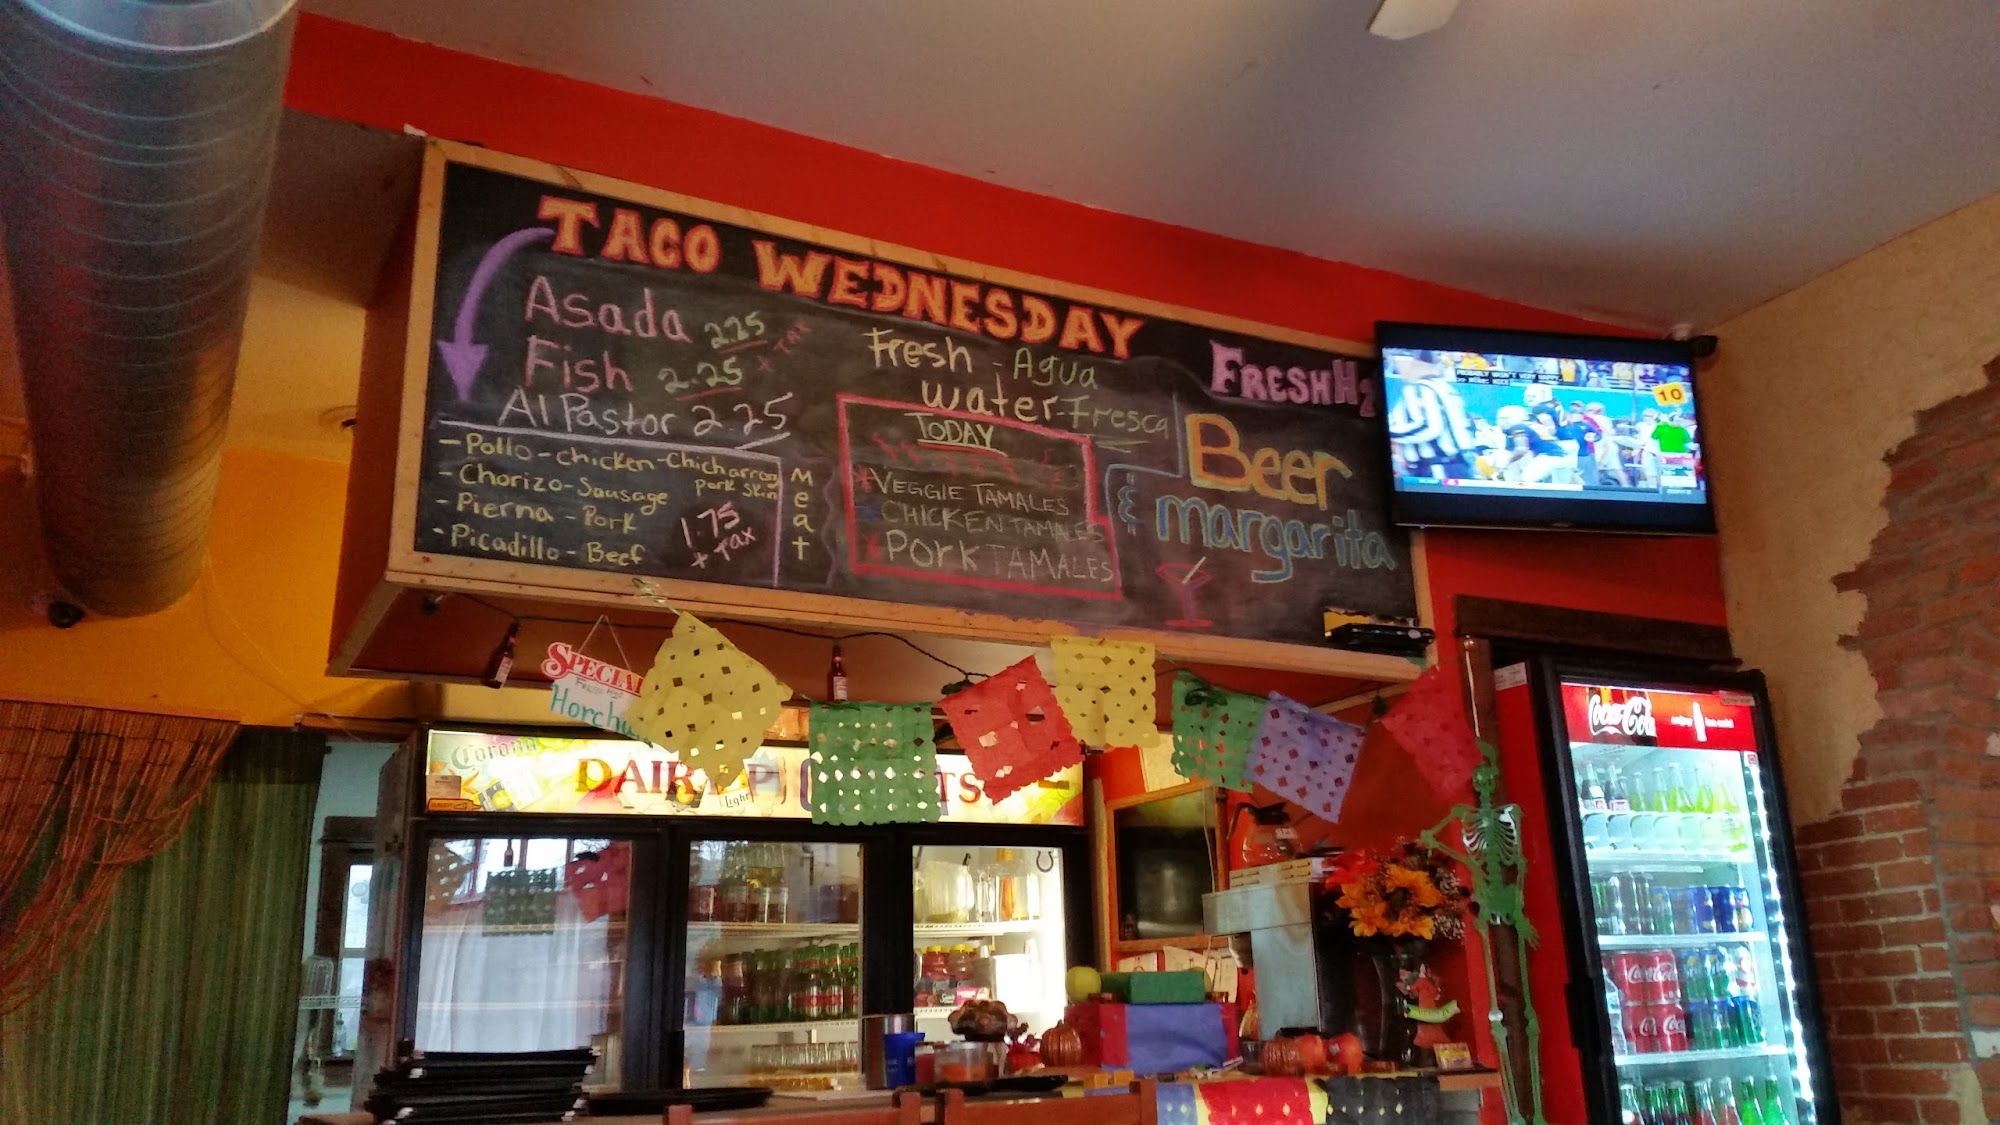 TACO WEDNESDAY
Asada 2.25
+ TAX
Fish 2.25
Al Pastor 2.25
- Pollo - chicken - Chicharron
Pork Skin
- Chorizo - Sausage
- Pierna - Pork
- Picadillo - Beef
1.75
+ Tax
Meat
Fresh - Agua
water - Fresca
TODAY
* VEGGIE TAMALES
CHICKEN TAMALES
* PORK TAMALES
FRESH H2
Beer
& margarita
10
SPECIAL
Horcha
Corona
DAIR
Light
TS
Coca-Cola
Coca